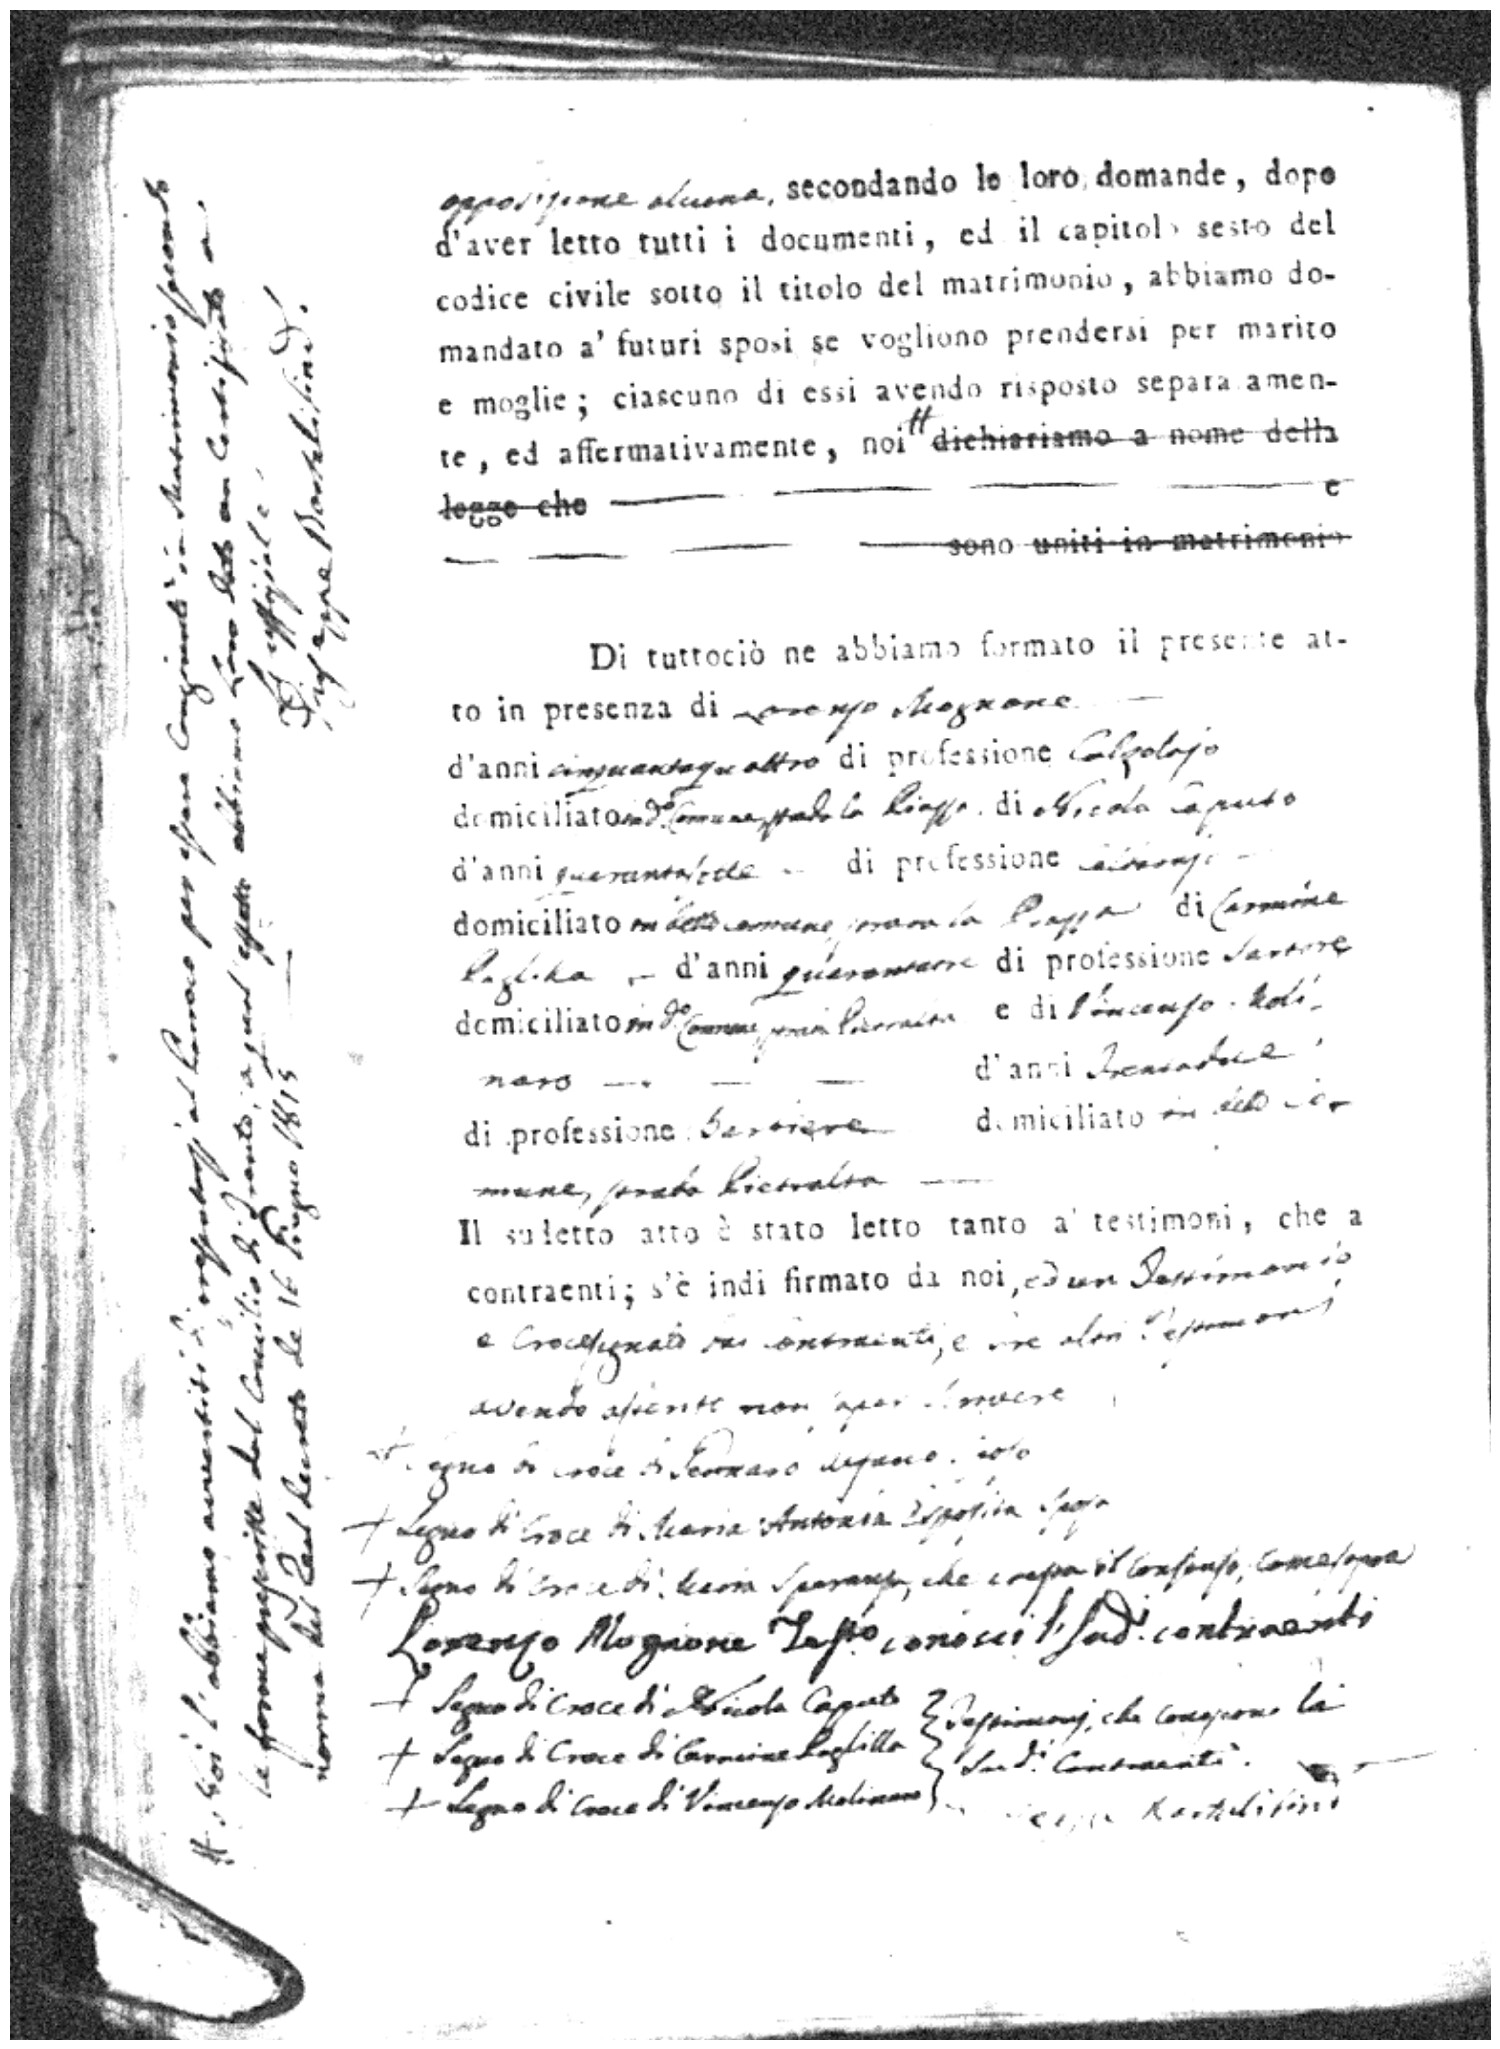 opposizione alcuna, secondando le loro domande, dopo
d'aver letto tutti i documenti, ed il capitolo sesto del
codice civile sotto il titolo del matrimonio, abbiamo do-
mandato a' futuri sposi se vogliono prendersi per marito
e moglie; ciascuno di essi avendo risposto separatamen-
te, ed affermativamente, noi # dichiariamo a nome della
legge che e
sono uniti in matrimonio
Di tuttociò ne abbiamo formato il presente at-
to in presenza di Lorenzo Mognone
d'anni cinquantaquattro di professione Calzolajo
domiciliato in do. Comune, strada la Piazza. di Nicola Caputo
d'anni di professione
domiciliato in detto comune, strada la Piazza di Carmine
Paglilla d'anni quarantatre di professione Sartore
domiciliato in do. Comune, strada Pietralta e di Vincenzo Moli-
naro d'anni Trentadue
di professione Barbiere domiciliato in detto Co-
mune, strada Pietralta
Il sudetto atto è stato letto tanto a' testimonj, che a
contraenti; s'è indi firmato da noi, ed un Testimonio
e Crocesegnato dai contraenti, e tre altri Testimonj
avendo asserito non saper scrivere
+ Segno di croce di Gennaro
+ Segno di Croce di Maria Antonia Esposita Sposa
+ Segno di Croce di Maria Speranza, che presta il consenso, come sopra
Lorenzo Mognone Testo. conosci l' Sudi. contraenti
+ Segno di Croce di Nicola Caputo
+ Segno di Croce di Carmine Paglilla
+ Segno di Croce di Vincenzo Molinaro
Testimonj, che conoscono li
Sudi. Contraenti.
# Noi l'abbiamo avvertiti di presentarsi al Parroco per essere Congiunti in Matrimonio secondo
le forme prescritte dal Concilio di Trento, a qual effetto abbiamo Loro dato un Certificato a
norma del Real Decreto de 16 Giugno 1815 L'uffiziale
Giuseppe